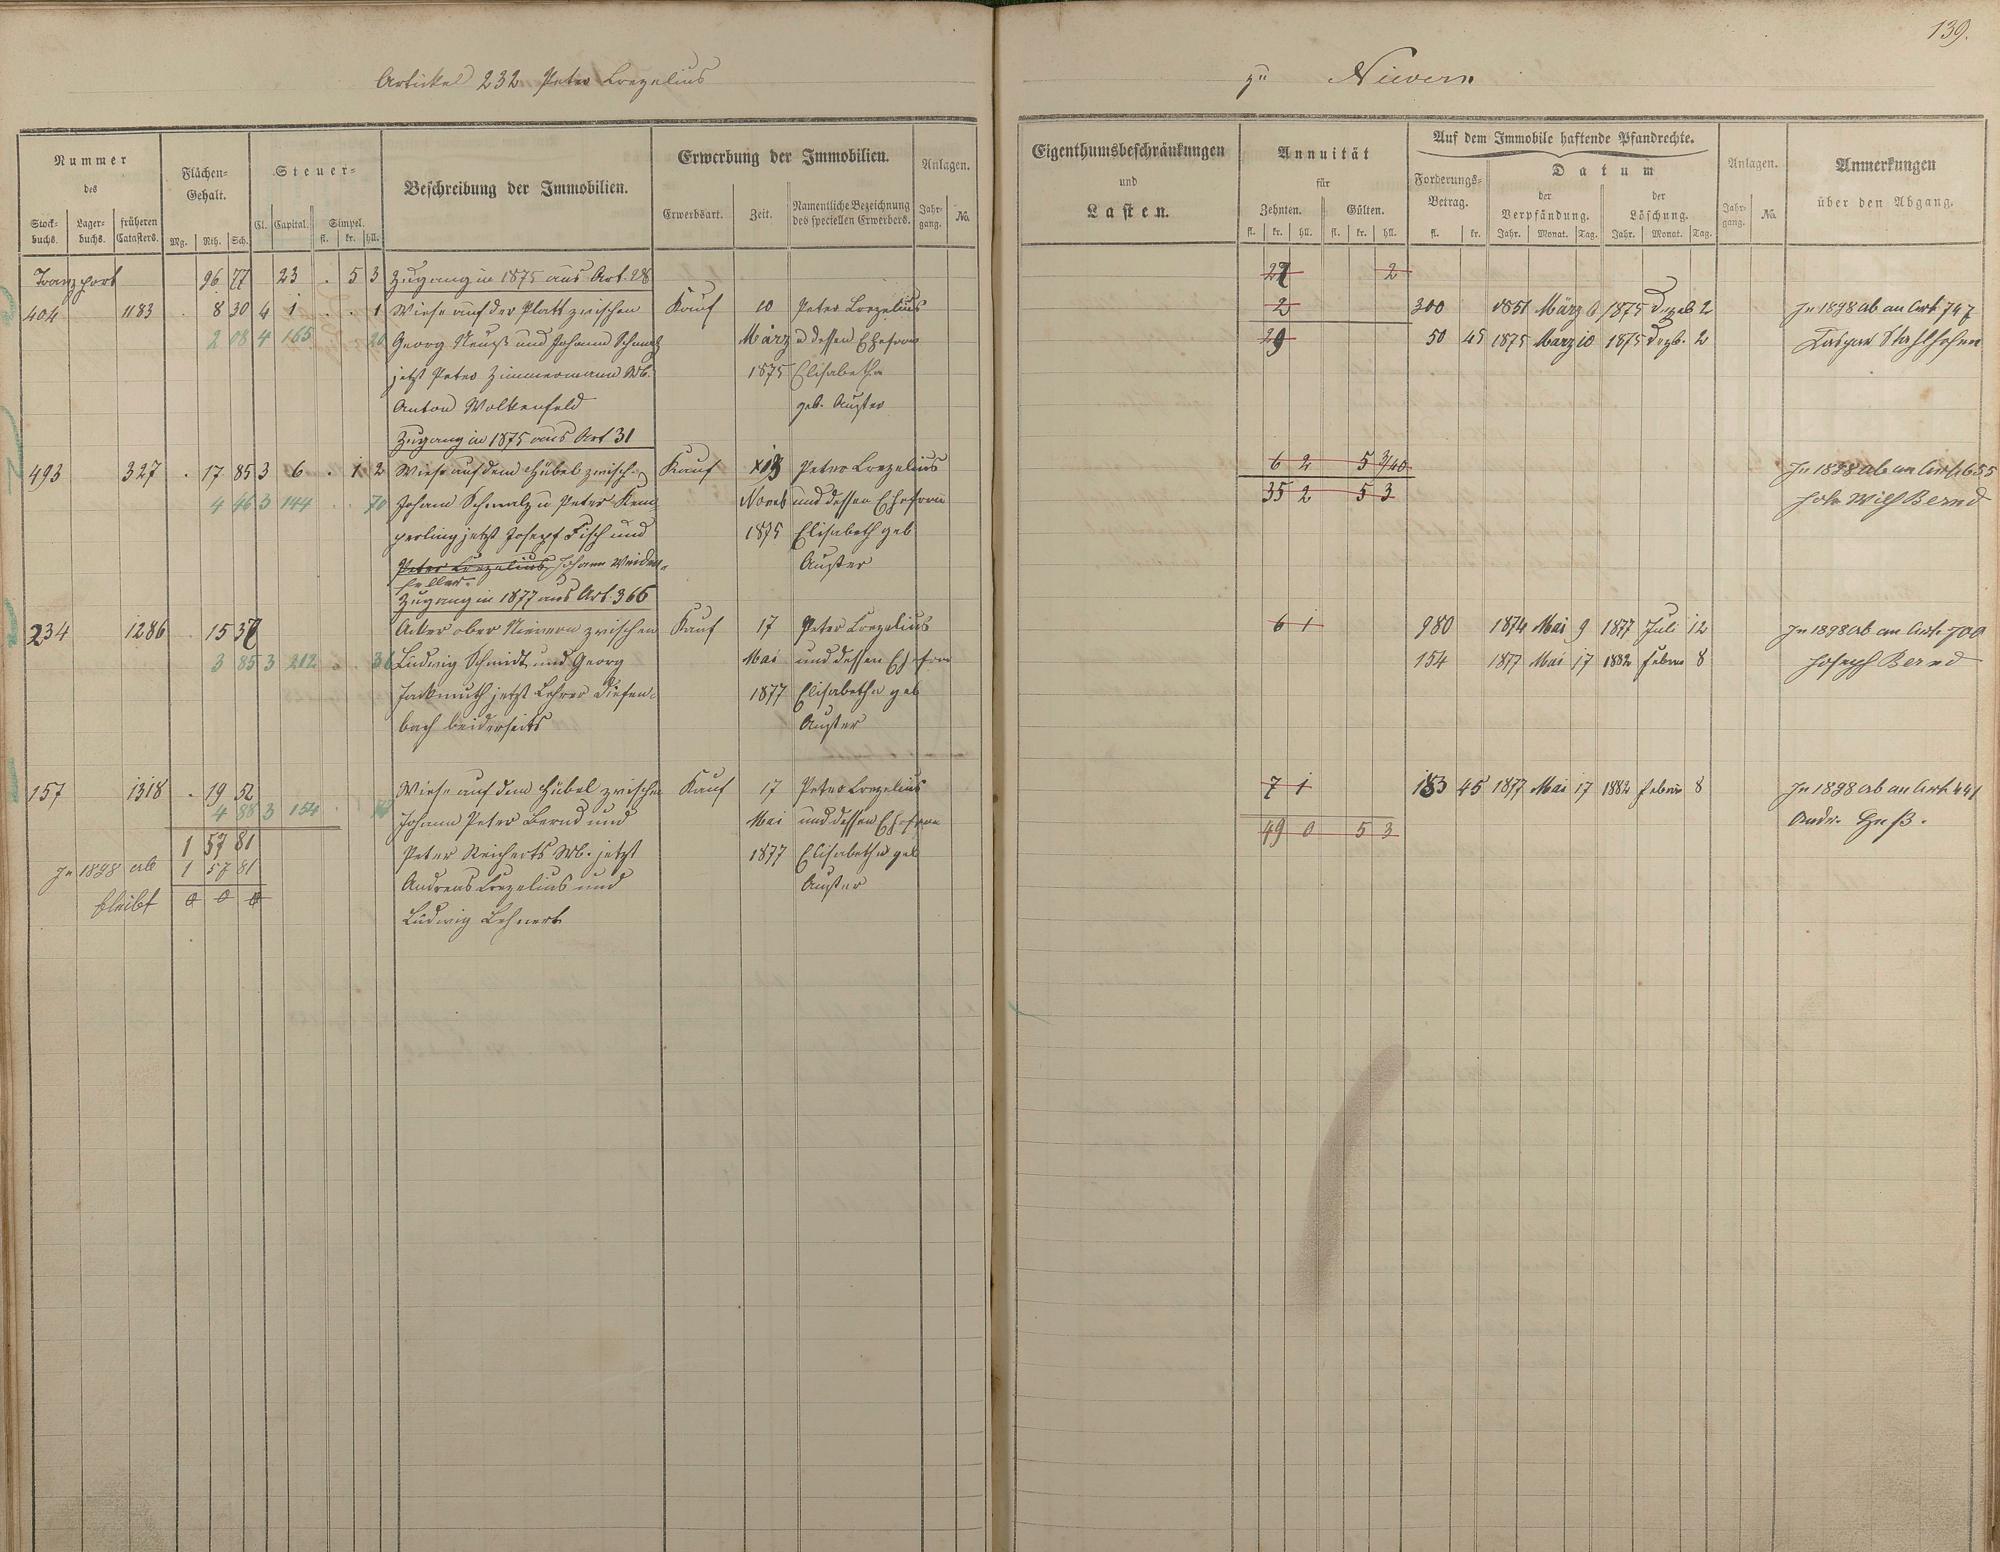 139.
Artickel 232 Peter Corzelius
zu Nievern
Nummer
des
Stock-
buchs.
Lager-
buchs.
früheren
Catasters.
Flächen-
Gehalt.
Mg. Rth. Sch.
Steuer-
Cl. Capital. Simpel.
fl. kr. hll.
Beschreibung der Immobilien.
Erwerbung der Immobilien.
Erwerbsart. Zeit. Namentliche Bezeichnung
des speciellen Erwerbers.
Anlagen.
Jahr-
gang. No.
Eigenthumsbeschränkungen
und
Lasten.
Annuität
für
Zehnten. Gülten.
fl. kr. hll. fl. kr. hll.
Auf dem Immobile haftende Pfandrechte.
Forderungs-
Betrag.
fl. kr.
Datum
der
Verpfändung.
Jahr. Monat. Tag.
der
Löschung.
Jahr. Monat. Tag.
Anlagen.
Jahr-
gang. No.
Anmerkungen
über den Abgang.
Transport 96 77 23 . 5 3 Zugang in 1875 aus Art. 28 2
404 1183 . 8 30 4 1 . . 1 Wiese auf der Platt zwischen Kauf 10 Peter Corzelius 2 300 1851 März 6 1875 Dezeb 2 In 1898 ab an Art. 747
2 08 4 165 20 Georg Neuß und Johann Schmalz März u dessen Ehefrau 29 50 45 1875 März 10 1875 Dezb. 2 Caspar Stahlhofen
jetzt Peter Zimmermann Wb. 1875 Elisabetha
Anton Wolkenfeld geb. Auster
Zugang in 1875 aus Art 31
493 327 . 17 85 3 6 . 1 2 Wiese auf dem Hübel zwisch. Kauf Peter Corzelius 6 2 5 In 1898 ab an Art. 655
4 46 3 144 . . 70 Johann Schmalz u Peter Kem- Noveb und dessen Ehefrau 35 2 5 3 Joh. Wilh Bernd
perling jetzt Josepf Fisch und 1875 Elisabeth geb
Peter Corzelius Johann Weiden- Auster
feller.
Zugang in 1877 aus Art. 366
234 1286 . 15 37 Acker ober Nievern zwischen Kauf 17 Peter Corzelius 6 1 980 1874 Mai 9 1877 Juli 12 In 1898 ab an Art. 700
3 85 3 212 Ludwig Schmidt und Georg Mai und dessen Ehefrau 154 1877 Mai 17 1882 Febru 8 Joseph Bernd
Jackmuth jetzt Lehrer Diefen- 1877 Elisabetha geb
bach beiderseits Auster
157 1318 . 19 52 Wiese auf dem Hübel zwischen Kauf 17 Peter Corzelius 7 1 183 45 1877 Mai 17 1882 Febru 8 In 1898 ab an Art. 441
4 88 3 154 Johann Peter Bernd und Mai und dessen Ehefrau 49 0 5 3 Andr. Heß.
1 57 81 Peter Reicherts Wb. jetzt 1877 Elisabetha geb
In 1898 ab 1 57 81 Andreas Corzelius und Auster
bleibt 0 0 0 Ludwig Lehnert